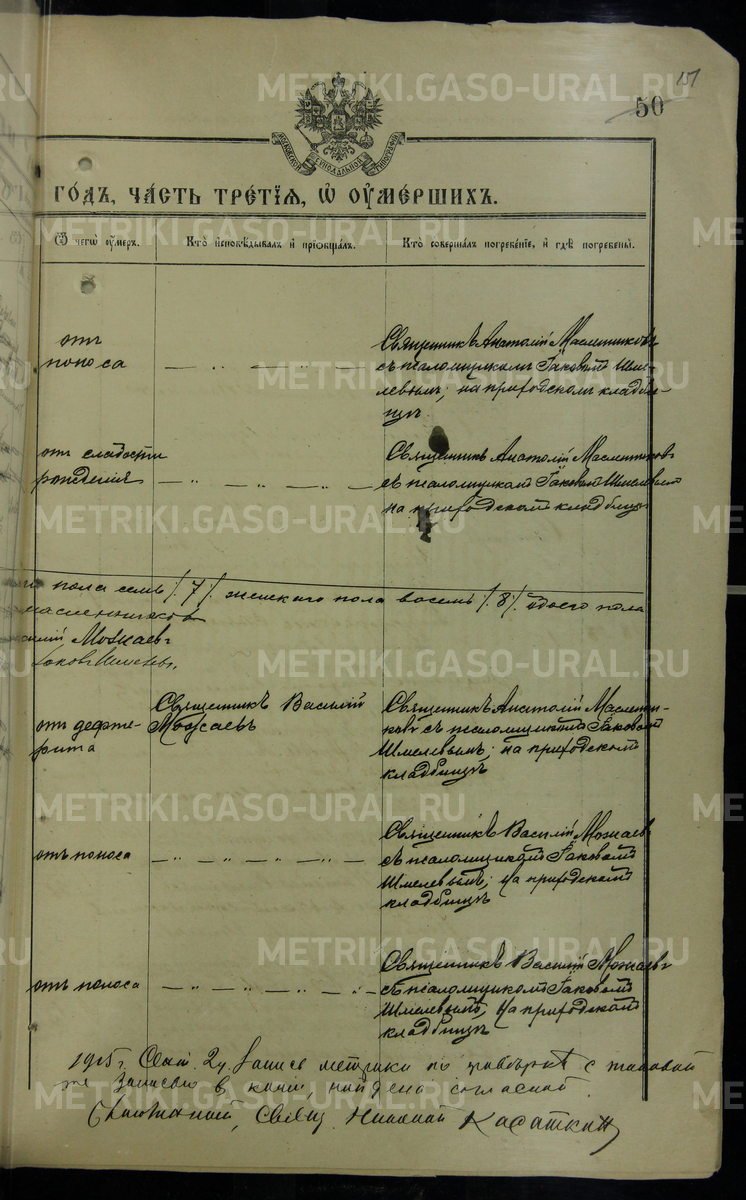 151
50
МОСКОВСКОЙ СУНОДАЛЬНОЙ ТИПОГРАФІИ
ГОДЪ, ЧАСТЬ ТРЕТІЯ, Ѡ ОУМЕРШИХЪ.
Ѿ чегѡ оумеръ.
Кто исповѣдывалъ и прїобщалъ.
Кто совершалъ погребенїе, и гдѣ погребены.
отъ
поноса
— „ — „ —
Священникъ Анатолій Масленниковъ
съ псаломщикомъ Іаковомъ Шме-
левымъ; на приходскомъ кладби-
щѣ
отъ слабости
рожденія
— „ — „ — „ —
Священникъ Анатолій Масленниковъ
съ псаломщикомъ Іаковомъ Шмелевымъ
на приходскомъ кладбищѣ
пола семь /7/ женскаго пола восемь /8/ обоего пола
Масленниковъ
Можаевъ
Іаковъ Шмелевъ.
отъ дифте-
рита
Священникъ Василій
Можаевъ
Священникъ Анатолій Масленни-
ковъ съ псаломщикомъ Іаковомъ
Шмелевымъ; на приходскомъ
кладбищѣ
отъ поноса
— „ — „ — „ —
Священникъ Василій Можаевъ
съ псаломщикомъ Іаковомъ
Шмелевымъ; на приходскомъ
кладбищѣ
отъ поноса
— „ — „ — „ —
Священникъ Василій Можаевъ
съ псаломщикомъ Іаковомъ
Шмелевымъ, на приходскомъ
кладбищѣ
1915 г. Сент. 24. Запись метрики по с таковой
же записью в найдена согласной.
Свящ. Николай Касаткин
METRIKI.GASO-URAL.RU